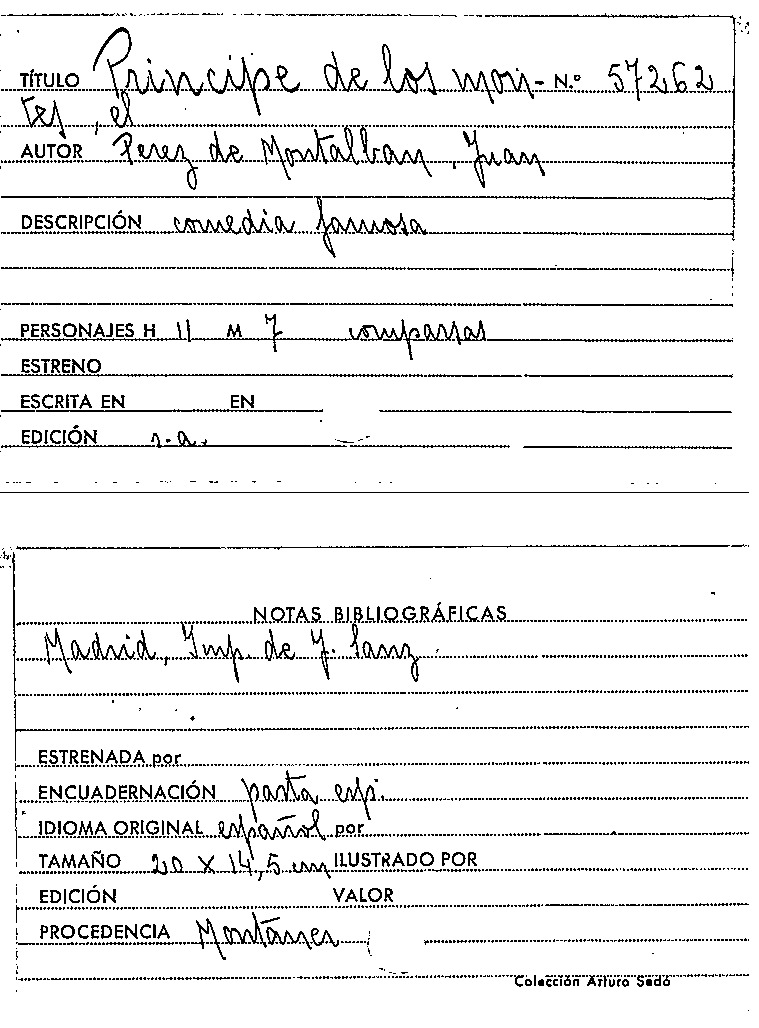 TÍTULO Principe de los mon- N.º 57262
tes, el
AUTOR Perez de Montalban, Juan
DESCRIPCIÓN comedia famosa
PERSONAJES H 11 M 7 comparsas
ESTRENO
ESCRITA EN EN
EDICIÓN s.a.
NOTAS BIBLIOGRÁFICAS
Madrid, Imp. de J. Sanz
ESTRENADA por
ENCUADERNACIÓN pasta esp.
IDIOMA ORIGINAL español por
TAMAÑO 20 X 14,5 cm ILUSTRADO POR
EDICIÓN VALOR
PROCEDENCIA Montaner
Colección Arturo Sedó